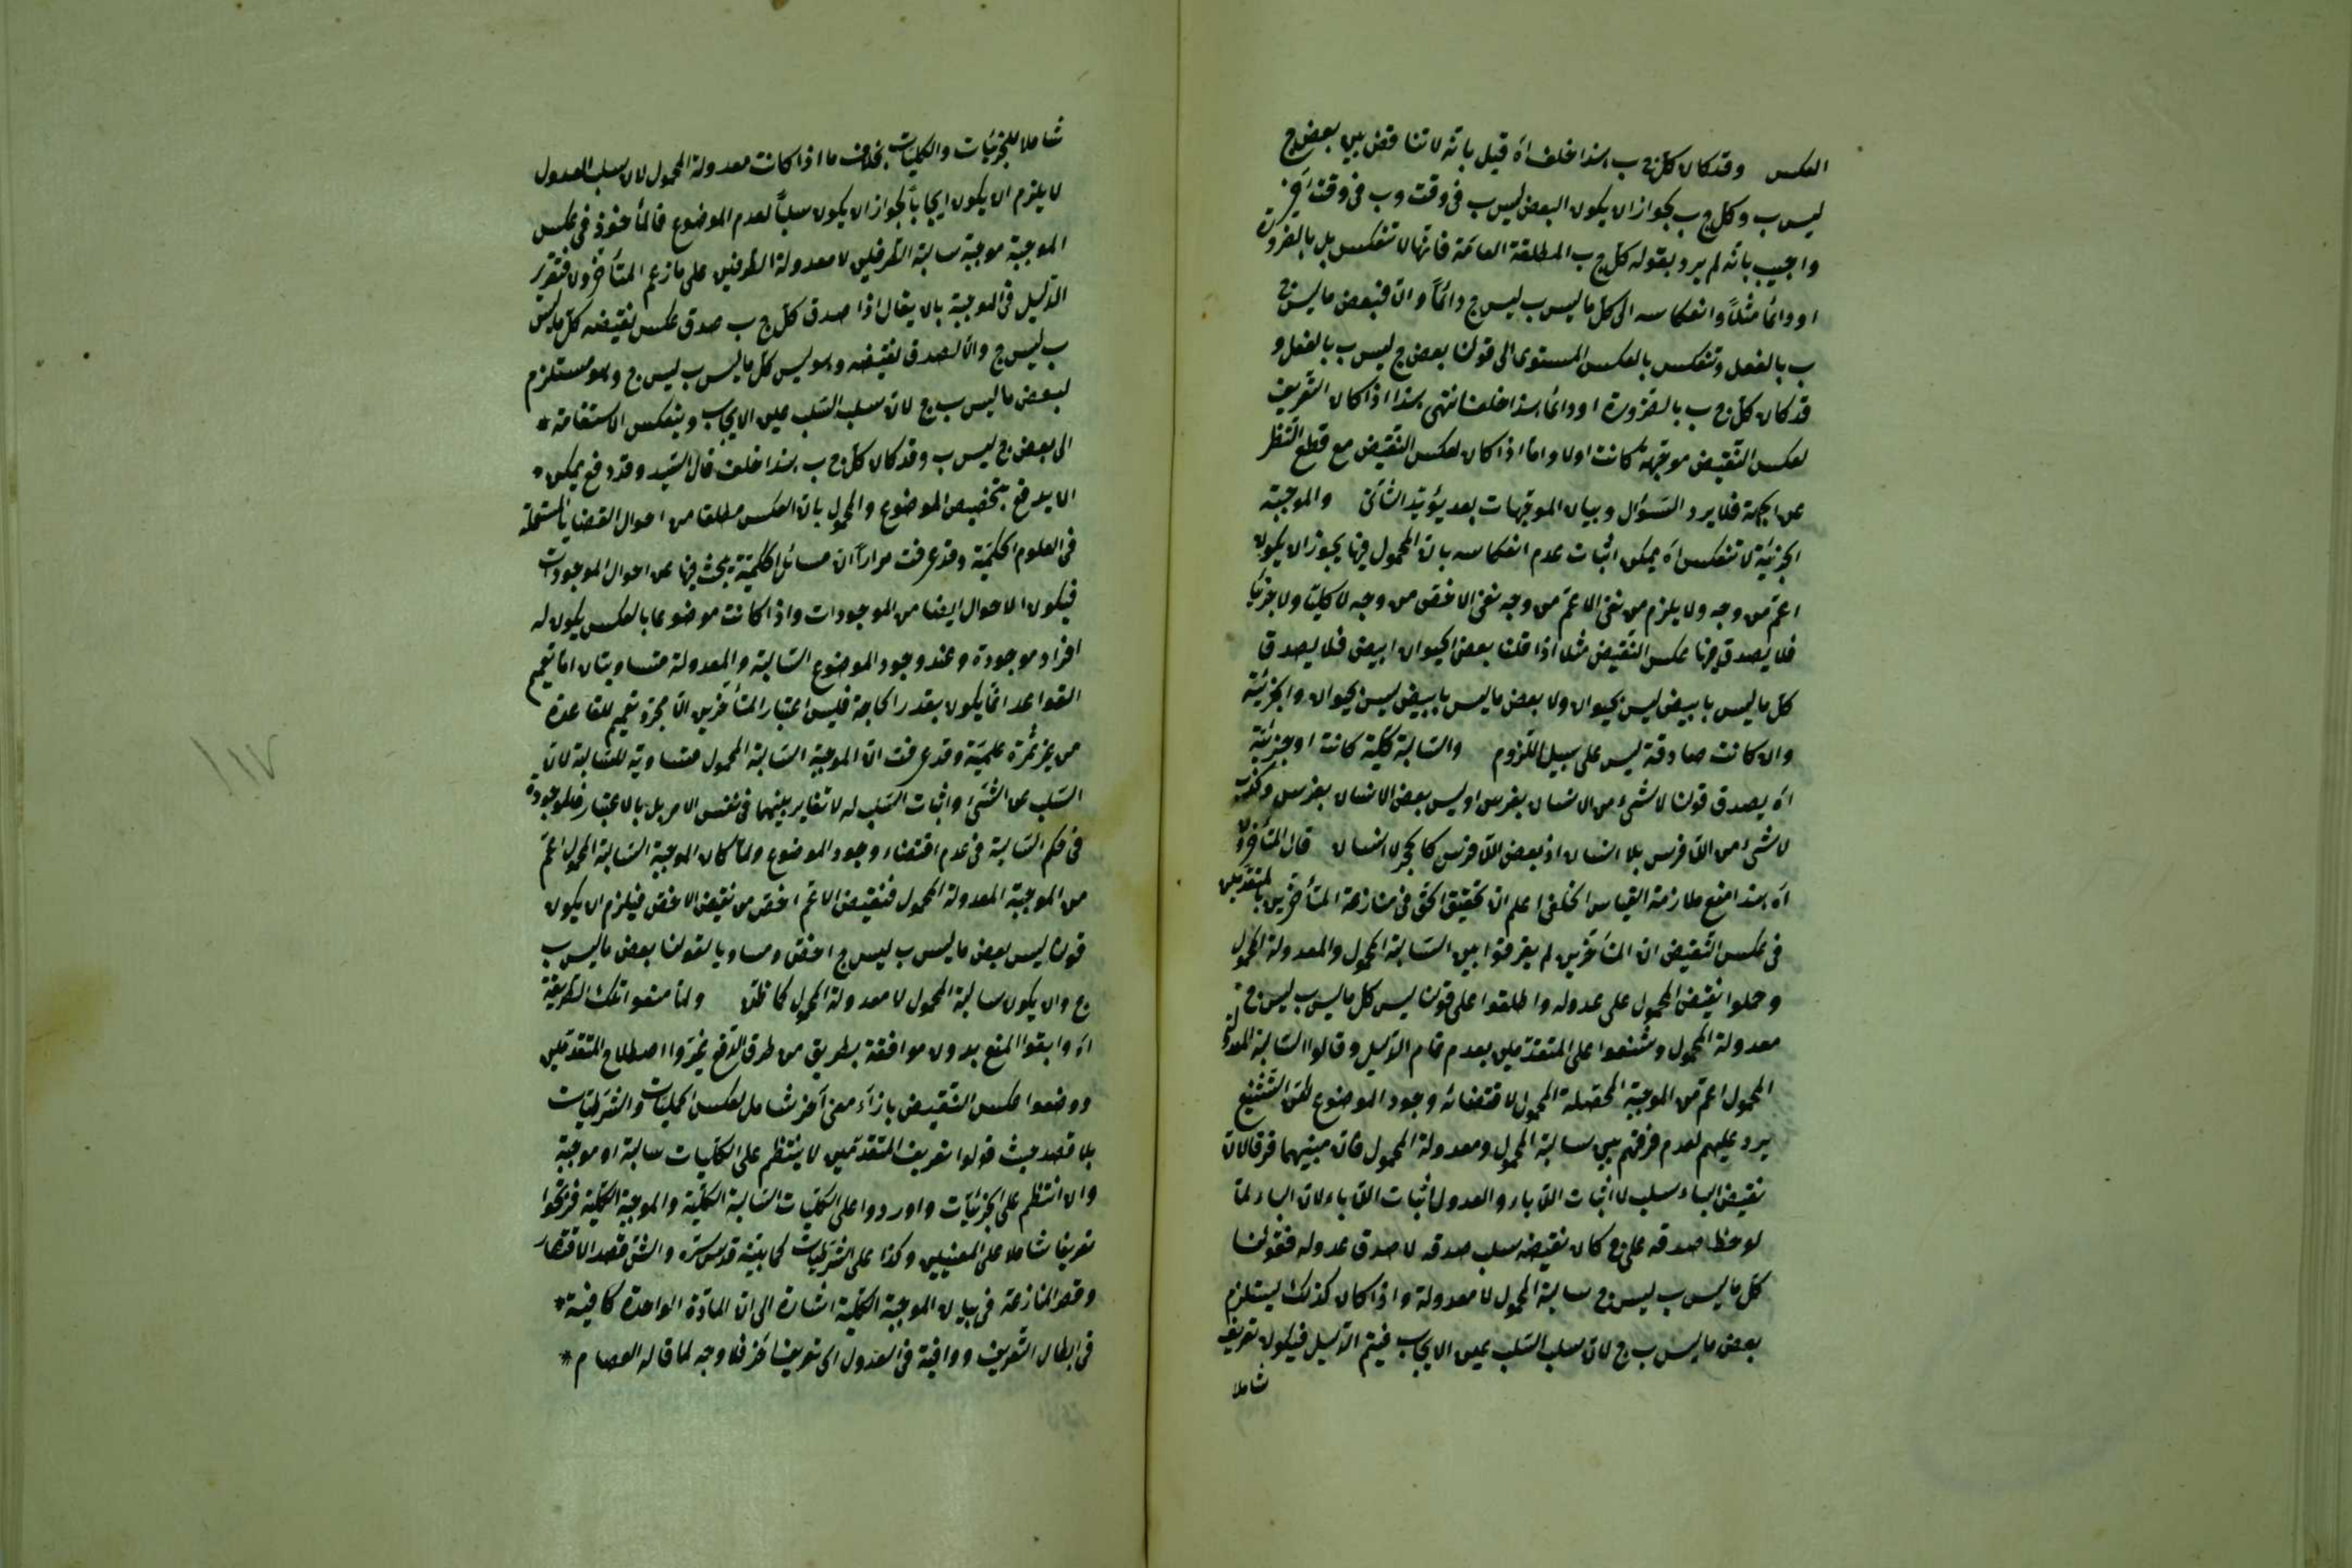 العكس وقد كان كل ج ب هذا خلف اه قيل بانه لا تناقض بين بعض ج
ليس ب وكل ج ب لجواز ان يكون البعض ليس ب فى وقت وب فى وقت آخر
واجيب بانه لم يرد بقوله كل ج ب المطلقة العامة فانها لا تنعكس بل بالضرورة
او دائما مثلاً وانعكاسه الى كل ما ليس ب ليس ج دائماً والا فبعض ما ليس ج
ب بالفعل وتنعكس بالعكس المستوى الى قولنا بعض ج ليس ب بالفعل و
قد كان كل ج ب بالضرورة او دائما هذا خلف انتهى هذا اذا كان التعريف
لعكس النقيض موجهة كانت اولا واما اذا كان لعكس النقيض مع قطع النظر
عن الجهة فلا يرد السؤال وبيان الموجهات بعد يؤيد الثانى والموجبة
الجزئية لا تنعكس اه يمكن اثبات عدم انعكاسه بان المحمول فيها يجوز ان يكون
اعم من وجه ولا يلزم من نفى الاعم من وجه نفى الاخص من وجه لا كليا ولا جزئيا
فلا يصدق فيها عكس النقيض مثلا اذا قلنا بعض الحيوان ابيض فلا يصدق
كل ما ليس بابيض ليس بحيوان ولا بعض ما ليس بابيض ليس بحيوان والجزئية
وان كانت صادقة ليس على سبيل اللزوم والسالبة كلية كانت او جزئية
اه يصدق قولنا لا شئ من الانسان بفرس او ليس بعض الانسان بفرس
لا شئ من اللا فرس بلا انسان اذ بعض اللا فرس كالحجر لا انسان قال المتأخرون
اه هذا منع ملازمة القياس الخلفى اعلم ان تحقيق الحق فى منازعة المتأخرين بالمتقدمين
فى عكس النقيض ان المتأخرين لم يفرقوا بين السالبة المحمول والمعدولة المحمول
وحملوا نقيض المحمول على عدوله واطلقوا على قولنا ليس كل ما ليس ب ليس ج
معدولة المحمول وشنعوا على المتقدمين بعدم تمام الدليل وقالوا السالبة المعدولة
المحمول اعم من الموجبة المحصلة المحمول لاقتضائه وجود الموضوع لكن التشنيع
يرد عليهم لعدم فرقهم بين سالبة المحمول ومعدولة المحمول فان بينهما فرقا لان
نقيض الباء سلب لا اثبات اللا باء والعدول اثبات اللا باء لان الباء لما
لوحظ صدقه على ج كان نقيضه سلب صدقه لا صدق عدوله فقولنا
كل ما ليس ب ليس ج سالبة المحمول لا معدولة واذا كان كذلك يستلزم
بعض ما ليس ب ج لان سلب السلب عين الايجاب فيتم الدليل فيكون تعريف
شاملا
شاملا للجزئيات والكليات بخلاف ما اذا كانت معدولة المحمول لان سلب العدول
لا يلزم ان يكون ايجابا لجواز ان يكون سلباً لعدم الموضوع فالمأخوذ فى عكس
الموجبة موجبة سالبة الطرفين لا معدولة الطرفين على ما زعم المتأخرون فتقرير
الدليل فى الموجبة بان يقال اذا صدق كل ج ب صدق عكس نقيضه كل ما ليس
ب ليس ج والا لصدق نقيضه وهو ليس كل ما ليس ب ليس ج وهو مستلزم
لبعض ما ليس ب ج لان سلب السلب عين الايجاب وينعكس الاستقامة *
الى بعض ج ليس ب وقد كان كل ج ب هذا خلف قال السيد وقد دفع يمكن *
ان يدفع بتخصيص الموضوع والمحمول بان العكس مطلقا من احوال القضايا المستعملة
فى العلوم الحكمية وقد عرفت مراراً ان مسائل الحكمية يبحث فيها عن احوال الموجودات
فيكون الاحوال ايضا من الموجودات واذا كانت موضوعا بالعكس يكون له
افراد موجودة وعند وجود الموضوع السالبة والمعدولة متساويتان اما تعميم
القواعد انما يكون بقدر الحاجة فليس اعتبار المتأخرين الا مجرد تعميم للقاعدة
من غير ثمرة علمية وقد عرفت ان الموجبة السالبة المحمول متساوية للسالبة لان
السلب عن الشئ واثبات السلب له لا تغاير بينهما فى نفس الامر بل بالاعتبار فالموجبة
فى حكم السالبة فى عدم اقتضاء وجود الموضوع ولما كان الموجبة السالبة المحمول اعم
من الموجبة المعدولة المحمول فنقيض الاعم اخص من نقيض الاخص فيلزم ان يكون
قولنا ليس بعض ما ليس ب ليس ج اخص ومساويا لقولنا بعض ما ليس ب
ج وان يكون سالبة المحمول لا معدولة المحمول كما ظن ولما منعوا تلك الطريقة
اه وابقوا المنع بدون موافقة بطريق من طرق الدفع غيروا اصطلاح المتقدمين
ووضعوا عكس النقيض بازاء معنى آخر شامل لعكس الحمليات والشرطيات
بلا قصد حيث قولوا تعريف المتقدمين لا ينتظم على الكليات سالبة او موجبة
وان انتظم على الجزئيات واوردوا على الكليات السالبة الكلية والموجبة الكلية
تعريفا شاملا على المعنيين وكذا على الشرطيات كما بينه قدس سره والشق قصد الاقتصار
وقصر المنازعة فى بيان الموجبة الكلية اشارة الى ان المادة الواحدة كافية *
فى ابطال التعريف ووافية فى العدول الى تعريف آخر فلا وجه لما قاله العصام *
١١٧